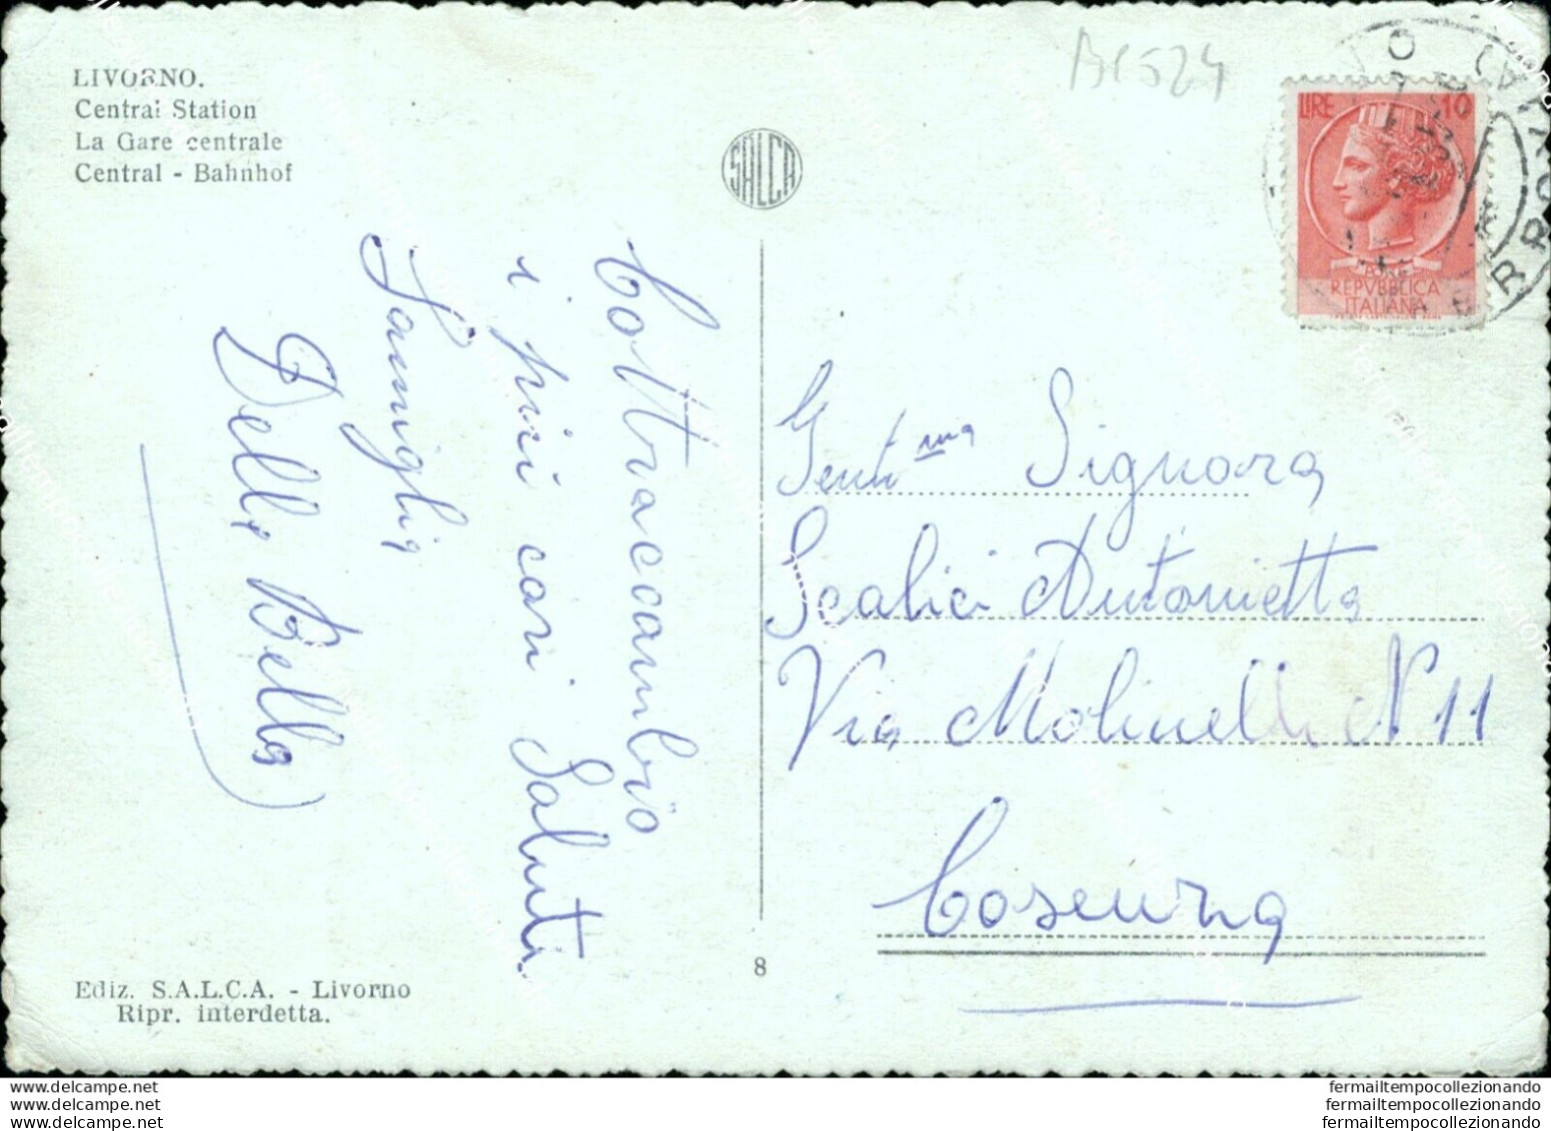 LIVORNO.
Central Station
La Gare centrale
Central - Bahnhof
SALCA
LIRE 10
REPVBBLICA
ITALIANA
Contraccambio
i più cari Saluti.
Famiglia
Della Bella
Gentma Signora
Scalici Antonietta
Via Molinelli N 11
Cosenza
8
Ediz. S.A.L.C.A. - Livorno
Ripr. interdetta.
www.delcampe.net
www.delcampe.net
www.delcampe.net
fermailtempocollezionando
fermailtempocollezionando
fermailtempocollezionando